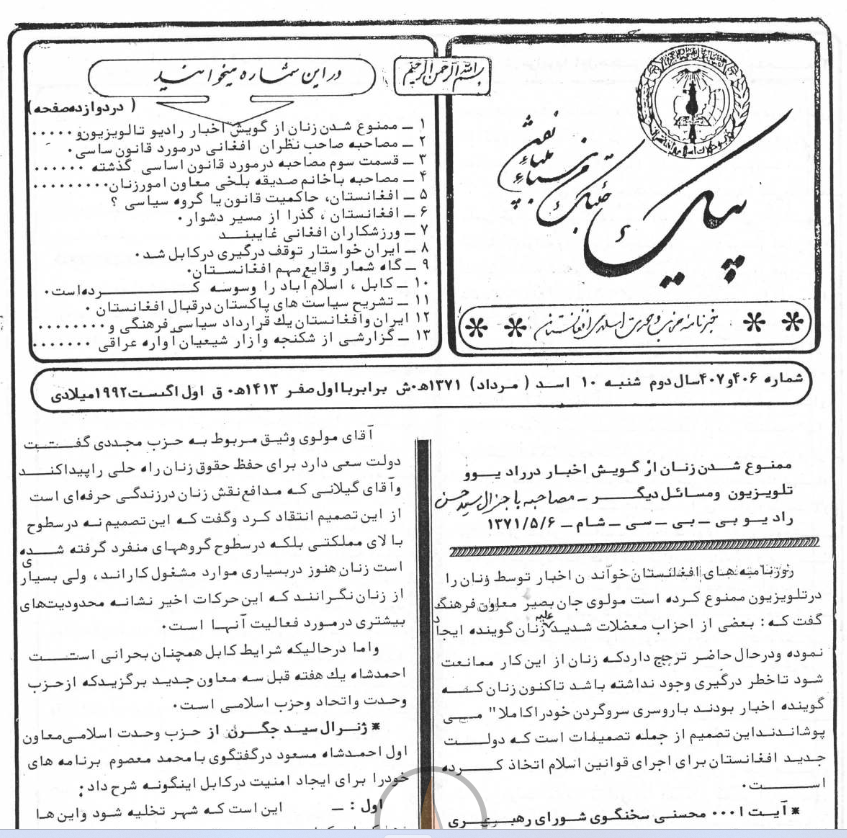 بسم الله الرحمن الرحیم
پیک
خبرنامه حزب و حرکت اسلامی افغانستان
در این شماره میخوانید
( در دوازده صفحه )
۱ ــ ممنوع شدن زنان از گویش اخبار رادیو تالویزیون و .....
۲ ــ مصاحبه صاحب نظران افغانی درمورد قانون ساسی.
۳ ــ قسمت سوم مصاحبه درمورد قانون اساسی گذشته ......
۴ ــ مصاحبه باخانم صدیقه بلخی معاون امورزنان.........
۵ ــ افغانستان، حاکمیت قانون یا گروه سیاسی ؟
۶ ــ افغانستان ، گذرا از مسیر دشوار.
۷ ــ ورزشکاران افغانی غایبنـد
۸ ــ ایران خواستار توقف درگیری درکابل شد.
۹ ــ گاه شمار وقایع مهم افغانستان.
۱۰ ــ کابل ، اسلام آباد را وسوسه کـــرده است.
۱۱ ــ تشریح سیاست های پاکستان درقبال افغانستان .
۱۲ ایران وافغانستان یك قرارداد سیاسی فرهنگی و........
۱۳ ــ گزارشی از شکنجه وازار شیعیان آواره عراقی .......
شماره ۴۰۶و۴۰۷سال دوم شنبه ۱۰ اسد ( مرداد) ۱۳۷۱ه.ش برابر با اول صفر ۱۴۱۳ه. ق اول اگست۱۹۹۲میلادی
ممنوع شـدن زنـان از گـویش اخبار درراد یــوو
تلویزیون ومسائل دیگـــر ــ مصاحبه با جنرال سید حسن
راد یـو بی ــ بی ــ سی ــ شام ــ ۱۳۷۱/۵/۶
روزنامه هـای افغانستان خواند ن اخبار توسط زنان را
درتلویزیون ممنوع کـرده است مولوی جان بصیر معاون فرهنگ
گفت کـه : بعضی از احزاب معضلات شدید علیه زنان گوینده ایجاد
نموده ودرحال حاضر ترجیح داردکه زنان از این کار ممانعت
شود تاخطر درگیری وجود نداشته باشد تاکنون زنان کـه
گوینده اخبار بودند باروسری سروگردن خودراکاملا" مــی
پوشاندنداین تصمیم از جمله تصمیمات است کـه دولــت
جدید افغانستان برای اجرای قوانین اسلام اتخاذ کــرده
اســـت.
* آیـت ا... محسنی سخنگوی شورای رهبـــری
آقای مولوی وثیـق مـربوط بـه حـزب مجددی گفــت
دولت سعی دارد برای حفظ حقوق زنان راه حلی راپیداکنــد
وآقای گیلانـی کـه مـدافع نقش زنان درزندگـی حرفه‌ای است
از این تصمیم انتقاد کـرد وگفت کـه این تصمیم نـه درسطوح
بـا لای مملکتـی بلکه درسطوح گروههای منفرد گرفته شــده
است زنان هنوز دربسیاری موارد مشغول کاراند، ولی بسیاری
از زنان نگـرانند کـه این حرکات اخیر نشانـه محدودیتهای
بیشتری درمـورد فعالیت آنهـا است.
وامـا درحالیکه شرایط کابل همچنان بحرانی اســـت
احمدشاه یك هفته قبل سـه معاون جدیـد برگزیدکه ازحـزب
وحـدت واتحاد وحزب اسلامـی است.
* ژنـرال سیـد جگـرن از حـزب وحـدت اسلامـی معاون
اول احمدشاه مسعود درگفتگوی بامحمد معصوم برنامه های
خودرا برای ایجاد امنیت درکابل اینگونـه شرح داد :
اول : ــ این است کـه شهر تخلیه شود واین هـا